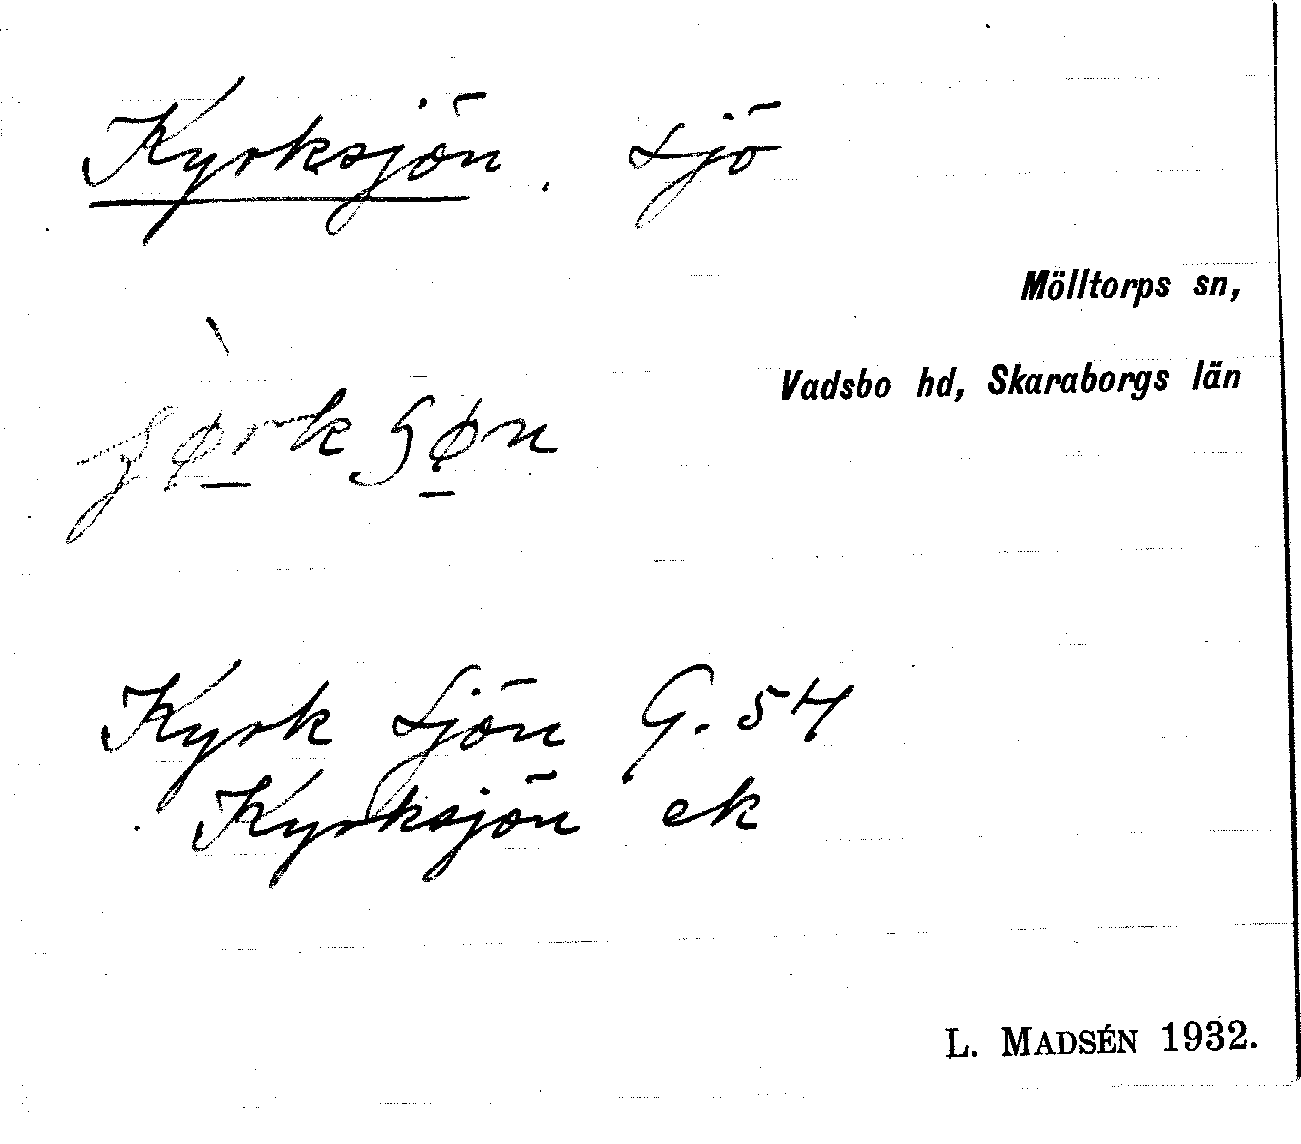 Kyrksjön. sjö
Mölltorps sn,
Vadsbo hd, Skaraborgs län
Kyrk Sjön G. 54
Kyrksjön ek
L. MADSÉN 1932.